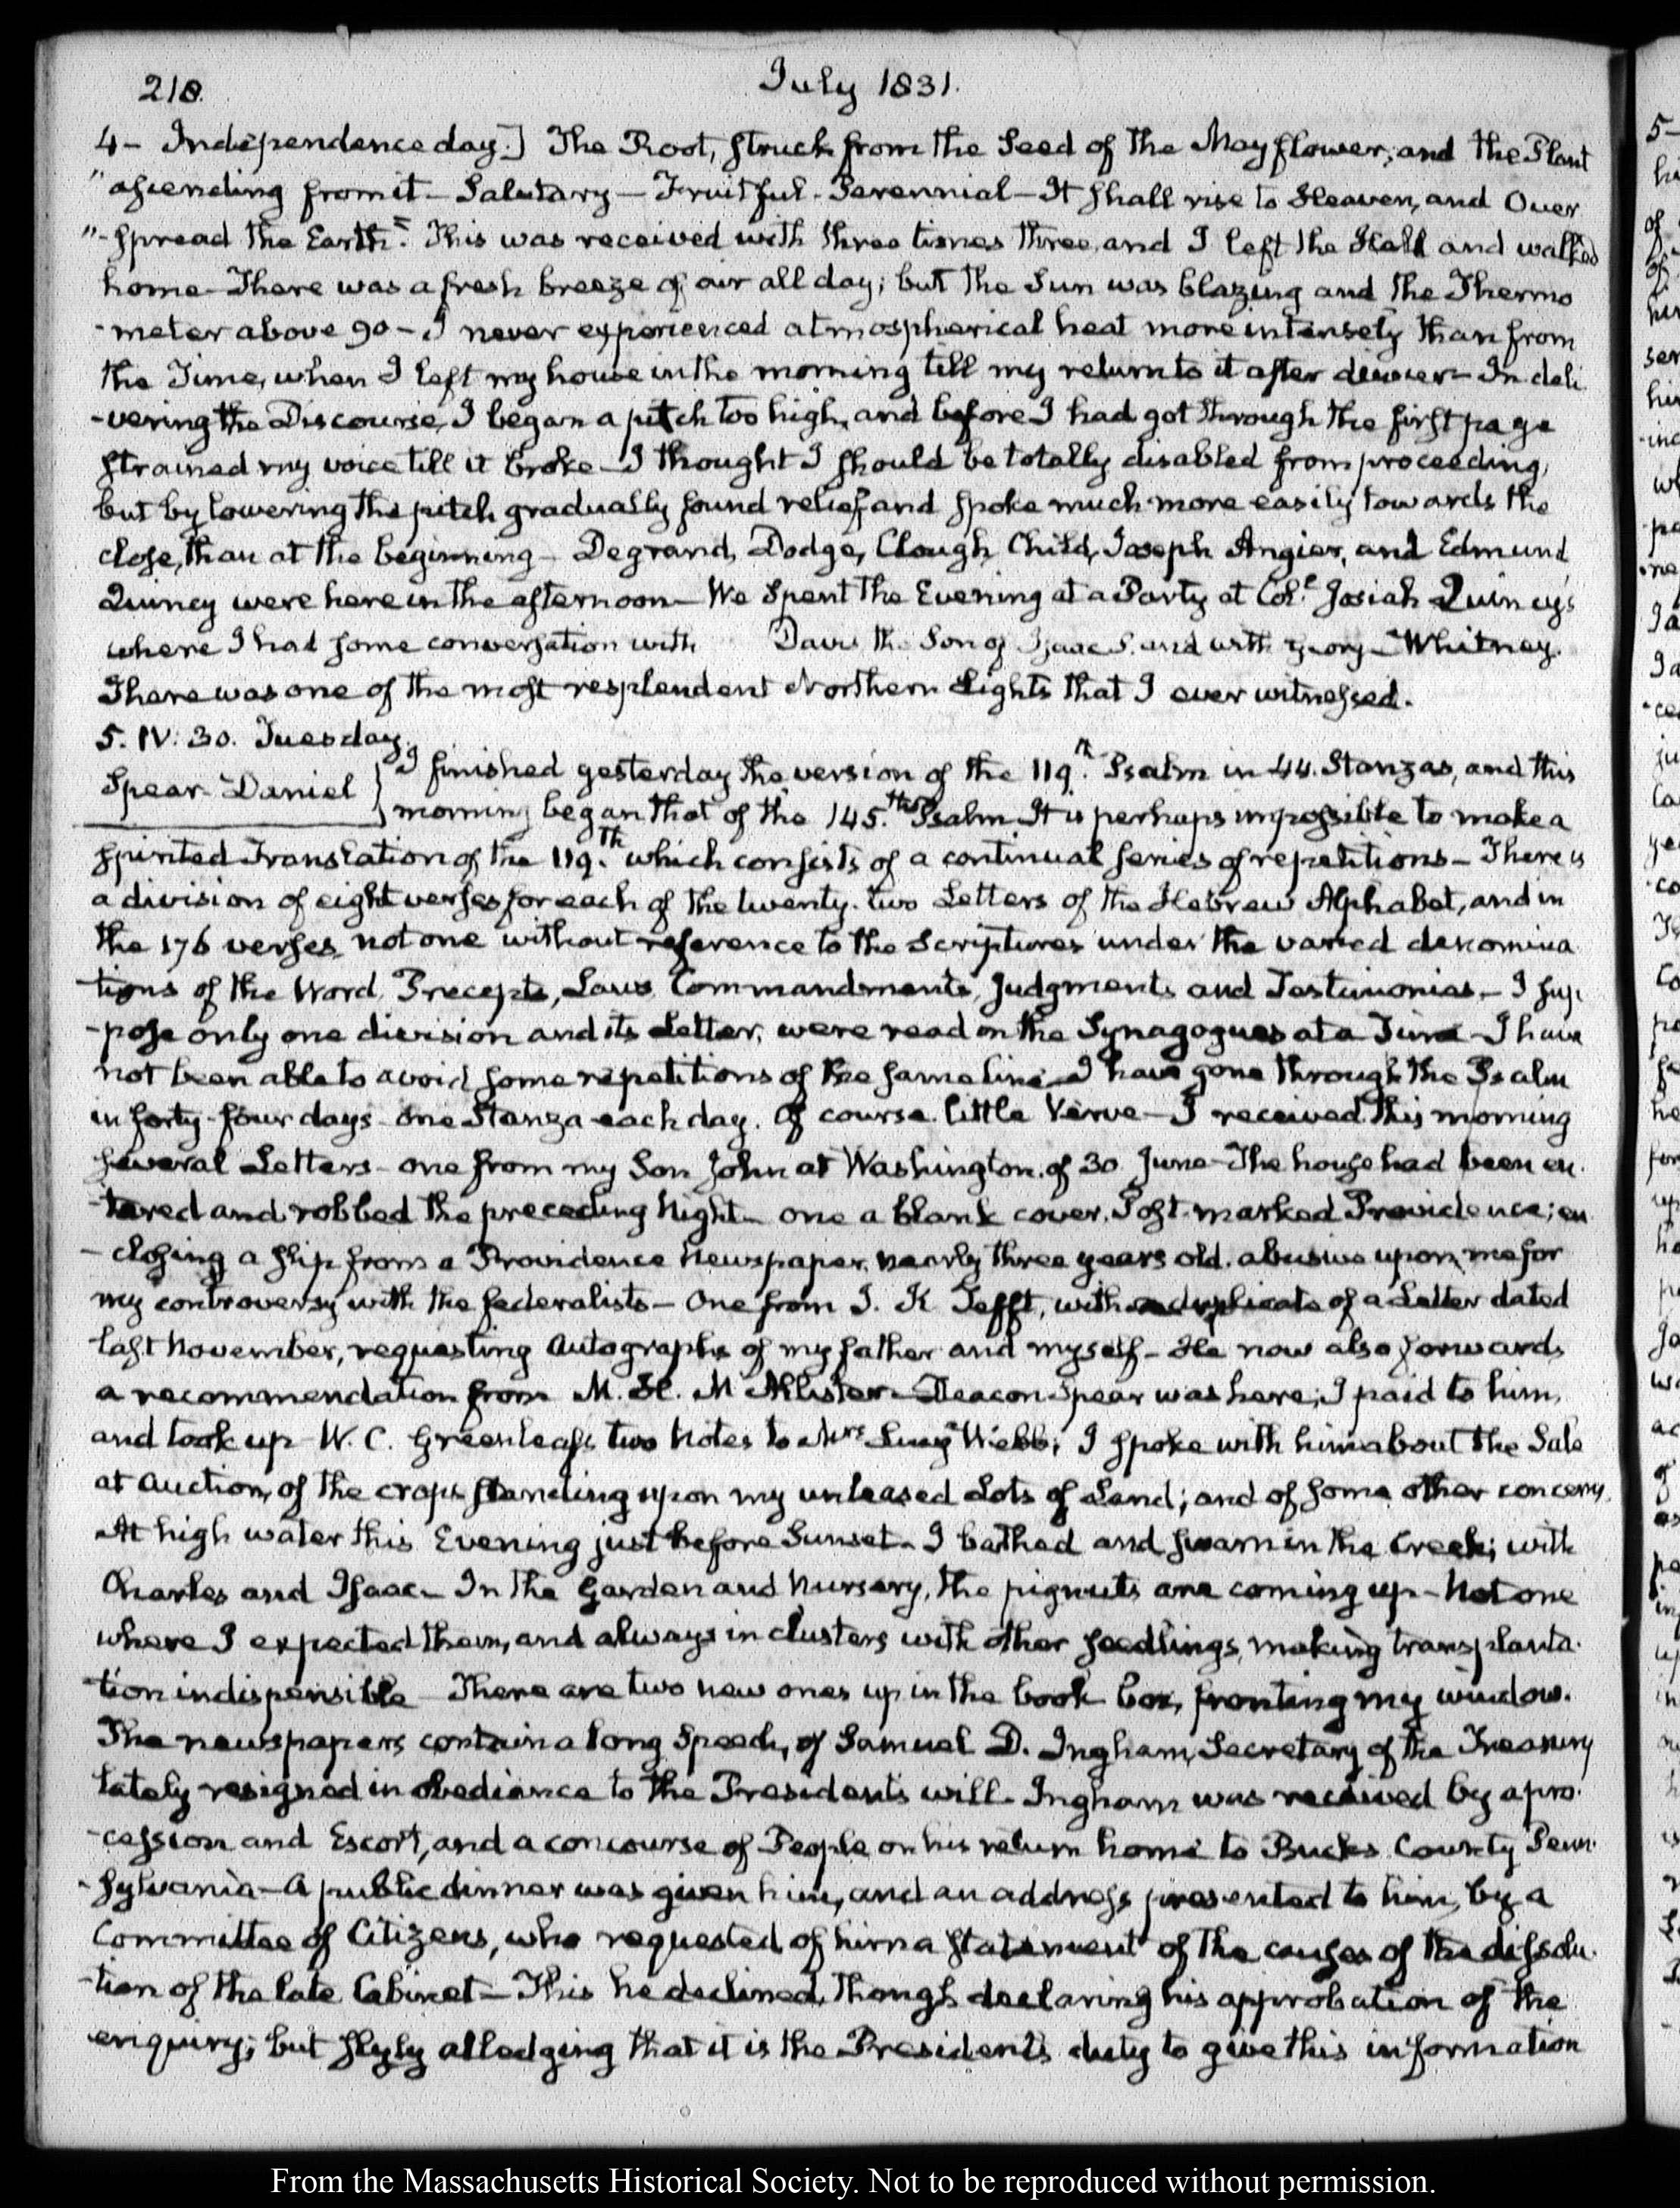 218.
July 1831.
4 - Independence day.] The Root, struck from the Seed of the May flower; and the Plant
"ascending from it - Salutary - Fruitful - Perennial - It shall rise to Heaven, and Over
"-spread the Earth." This was received with three times three, and I left the Hall and walked
home - There was a fresh breeze of air all day; but the Sun was blazing and the Thermo
-meter above 90 - I never experienced atmospherical heat more intensely than from
the Time, when I left my house in the morning till my return to it after dinner - In deli
-vering the Discourse, I began a pitch too high, and before I had got through the first page
strained my voice till it broke - I thought I should be totally disabled from proceeding,
but by lowering the pitch gradually found relief, and spoke much more easily towards the
close, than at the beginning - Degrand, Dodge, Clough, Child, Joseph Angier, and Edmund
Quincy were here in the afternoon - We Spent the Evening at a Party at Col.l Josiah Quincy's
where I had some conversation with Davis the Son of Isaac P. and with George Whitney.
There was one of the most resplendent Northern Lights that I ever witnessed.
5. IV. 30. Tuesday.
Spear - Daniel } I finished yesterday the version of the 119.th Psalm in 44. Stanzas, and this
morning began that of the 145.th Psalm - It is perhaps impossible to make a
spirited Translation of the 119.th which consists of a continual series of repetitions - There is
a division of eight verses for each of the twenty-two Letters of the Hebrew Alphabet, and in
the 176 verses, not one without reference to the Scriptures under the varied denomina
tions of the Word, Precepts, Laws, Commandments, Judgments and Testimonies - I sup
-pose only one division and its Letter, were read in the Synagogues at a Time - I have
not been able to avoid some repetitions of the same line - I have gone through the Psalm
in forty-four days - one Stanza each day. Of course little Verve - I received this morning
several Letters - one from my Son John at Washington of 30 June - The house had been en
-tered and robbed the preceding Night - one a blank cover, Post-marked Providence; en
-closing a slip from a Providence Newspaper, nearly three years old, abusive upon me for
my controversy with the federalists - One from I. K Tefft, with duplicate of a Letter dated
last November, requesting Autographs of my father and myself - He now also forwards
a recommendation from M. H. McAllister - Deacon Spear was here; I paid to him,
and took up W. C. Greenleaf's two Notes to Mrs Lucy Webb; I spoke with him about the Sale
at Auction, of the crops standing upon my unleased Lots of Land; and of some other concerns.
At high water this Evening just before Sunset - I bathed and swam in the Creek; with
Charles and Isaac - In the Garden and Nursery, the pignuts are coming up - Not one
where I expected them, and always in clusters with other seedlings, making transplanta-
tion indispensible - There are two new ones up in the book box, fronting my window.
The newspapers contain a long Speech, of Samuel D. Ingham, Secretary of the Treasury
lately resigned in obedience to the Presidents will - Ingham was received by a pro-
-cession and Escort, and a concourse of People on his return home to Bucks County Penn-
-sylvania - A public dinner was given him, and an address presented to him, by a
Committee of Citizens, who requested of him a statement of the causes of the dissolu-
-tion of the late Cabinet - This he declined, though declaring his approbation of the
enquiry; but slyly alledging that it is the President's duty to give this information
From the Massachusetts Historical Society. Not to be reproduced without permission.